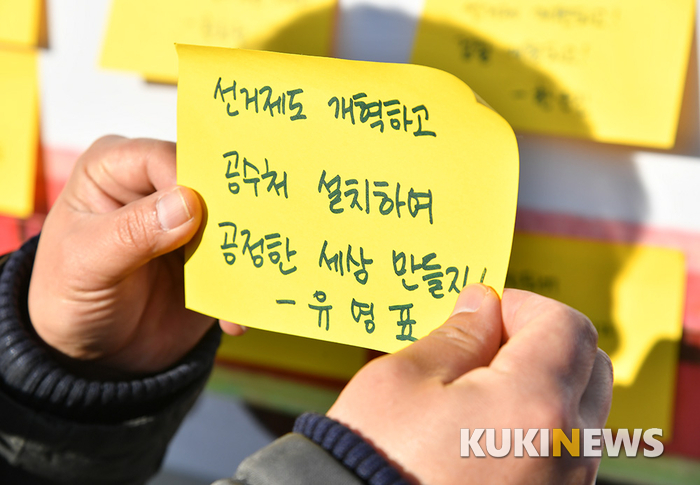 선거제도 개혁하고
공수처 설치하여
공정한 세상 만들자!
- 유영표
KUKINEWS